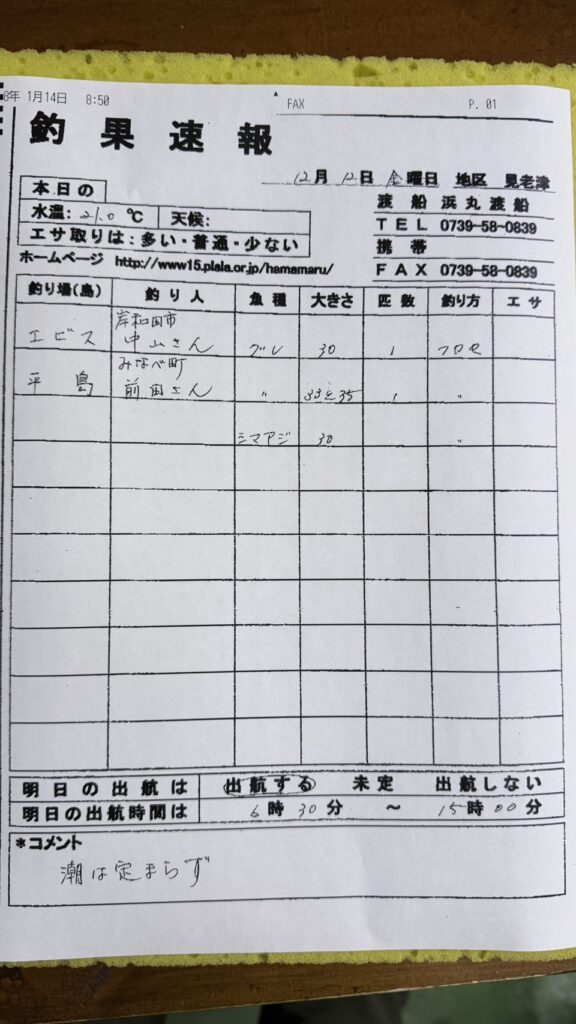 8年 1月14日 8:50 FAX P. 01
釣果速報
12月 12日 金曜日 地区 見老津
渡船 浜丸渡船
TEL 0739-58-0839
携帯
FAX 0739-58-0839
本日の
水温: 21.0 ℃ 天候:
エサ取りは:多い・普通・少ない
ホームページ http://www15.plala.or.jp/hamamaru/
釣り場(島) 釣り人 魚種 大きさ 匹数 釣り方 エサ
岸和田市
エビス 中山さん グレ 30 1 フカセ
みなべ町
平島 前田さん 〃 33と35 〃
シマアジ 30 〃
明日の出航は 出航する 未定 出航しない
明日の出航時間は 6時30分 ~ 15時00分
*コメント
潮は定まらず